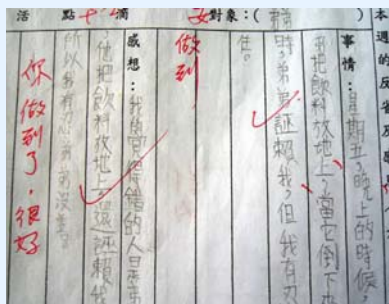 本週的反省
事情：星期五，晚上的時候，
弟把飲料放地上，當它倒下來
時，弟弟誣賴我，但我有忍
住。
對象：（
做到
感想：我覺得錯的人是弟弟
，他把飲料放地上，還誣賴我
所以我有忍
活點滴
你做到了，很好